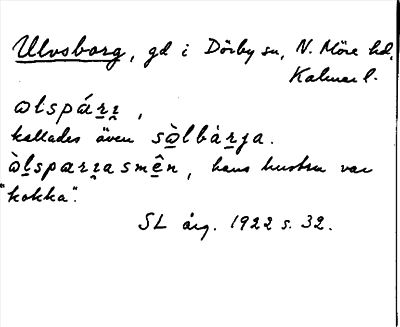 Ulvsborg, gd i Dörby sn, N. Möre hd,
Kalmar l.
ɷlspár̠ı̯,
kallades även sɷ̠̀lbàr̠ja.
ɷ̀l̠spar̠ı̯asmê̠n, hans hustru var
"kokka".
SL årg. 1922 s. 32.